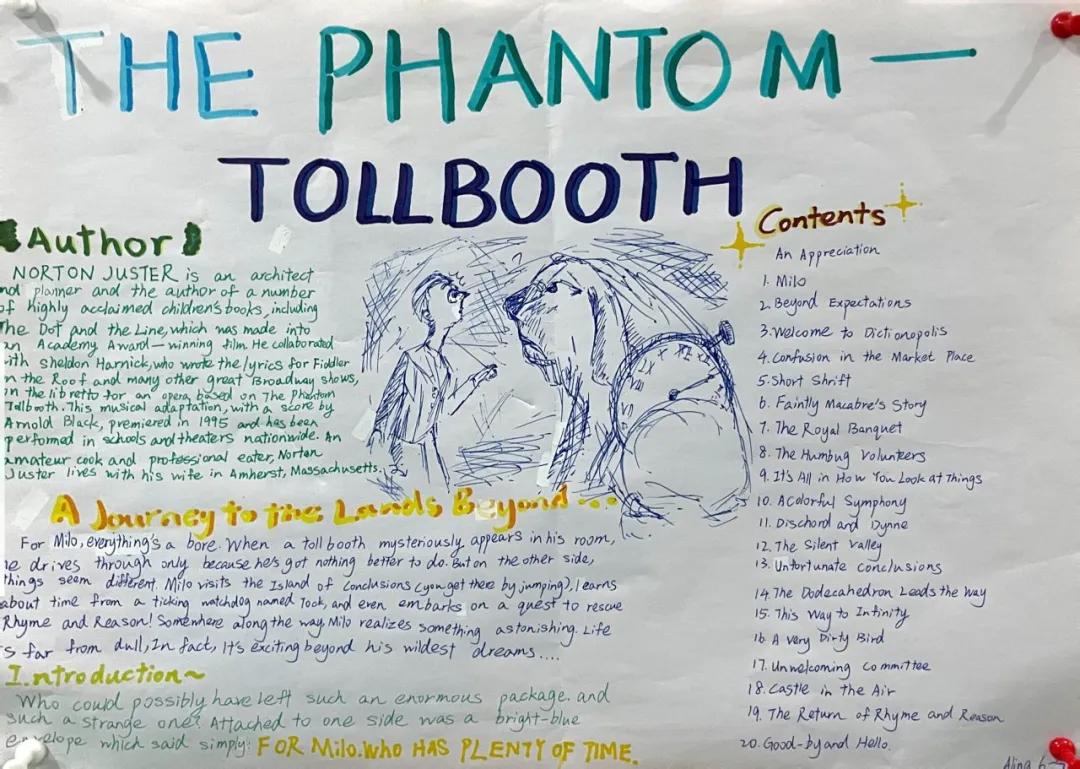 THE PHANTOM —
TOLLBOOTH
Author
NORTON JUSTER is an architect
nd planner and the author of a number
of highly acclaimed children's books, including
The Dot and the Line, which was made into
an Academy Award—winning film. He collaborated
ith sheldon Harnick, who wrote the lyrics for Fiddler
n the Roof and many other great Broadway shows,
on the libretto for an opera based on The Phantom
Tollbooth. This musical adaptation, with a score by
Arnold Black, premiered in 1995 and has been
performed in schools and theaters nationwide. An
amateur cook and professional eater, Norton
Juster lives with his wife in Amherst, Massachusetts.
A Journey to the Lands Beyond...
For Milo, everything's a bore. When a tollbooth mysteriously appears in his room,
he drives through only because he's got nothing better to do. But on the other side,
things seem different. Milo visits the Island of Conclusions (you get there by jumping), learns
about time from a ticking watchdog named Tock, and even embarks on a quest to rescue
Rhyme and Reason! Somewhere along the way Milo realizes something astonishing. Life
s far from dull, In fact, It's exciting beyond his wildest dreams....
Introduction~
Who could possibly have left such an enormous package. and
such a strange one? Attached to one side was a bright-blue
envelope which said simply: FOR Milo. Who HAS PLENTY OF TIME.
Contents
An Appreciation
1. Milo
2. Beyond Expectations
3. Welcome to Dictionopolis
4. Confusion in the Market Place
5. Short Shrift
6. Faintly Macabre's Story
7. The Royal Banquet
8. The Humbug Volunteers
9. It's All in How You Look at Things
10. A Colorful Symphony
11. Dischord and Dynne
12. The Silent Valley
13. Unfortunate conclusions
14. The Dodecahedron Leads the Way
15. This Way to Infinity
16. A very Dirty Bird
17. Unwelcoming Committee
18. Castle in the Air
19. The Return of Rhyme and Reason
20. Good-by and Hello.
Alina